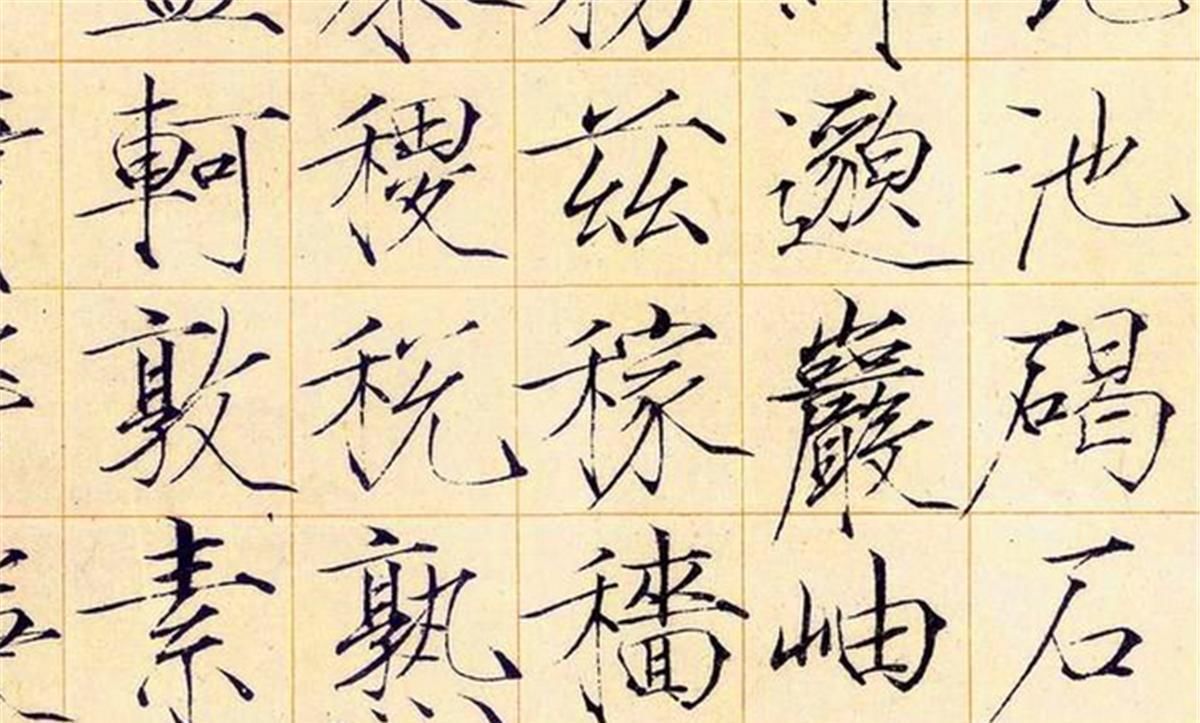 池碣石
邈巖岫
茲稼穡
稷稅熟
軻敦素